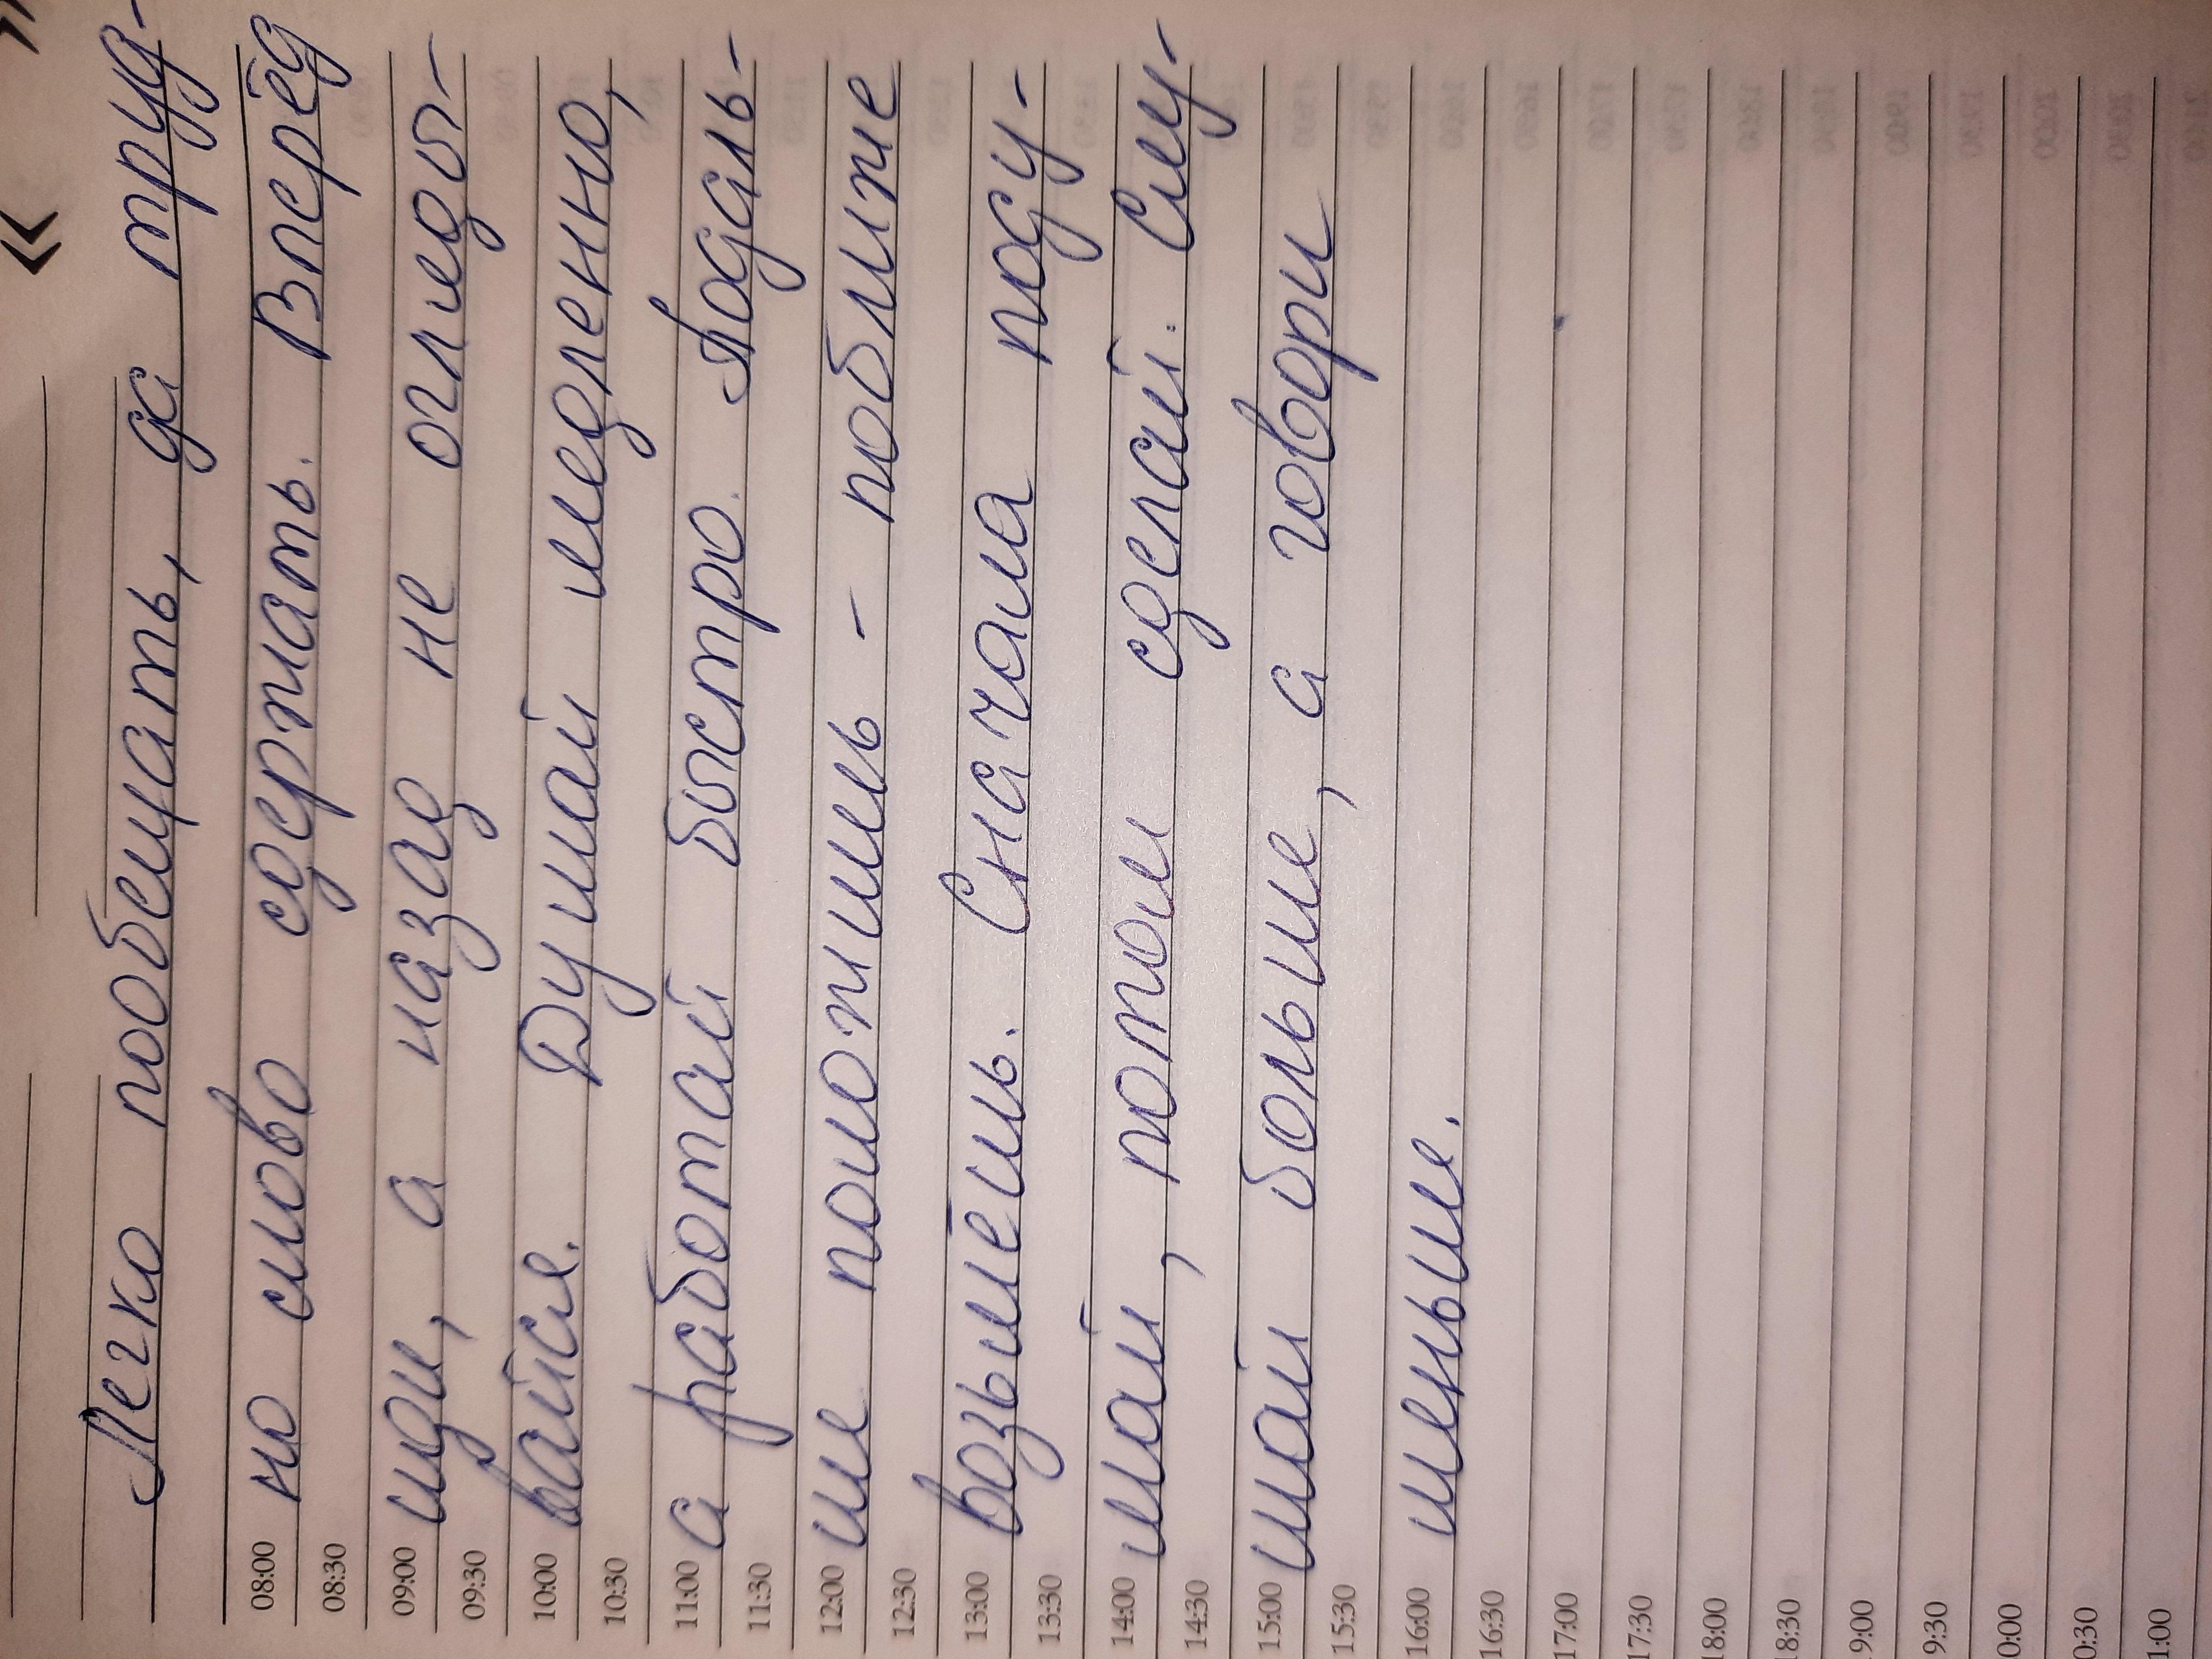 « »
Легко пообещать, да труд-
08:00 но слово сдержать. Вперёд
08:30
09:00 иди, а назад не огляды-
09:30
10:00 вайся. Думай медленно,
10:30
11:00 а работай быстро. Подаль-
11:30
12:00 ше положишь - поближе
12:30
13:00 возьмёшь. Сначала поду-
13:30
14:00 май, потом сделай. Слу-
14:30
15:00 шай больше, а говори
15:30
16:00 меньше.
16:30
17:00
17:30
18:00
18:30
19:00
9:30
0:00
0:30
1:00